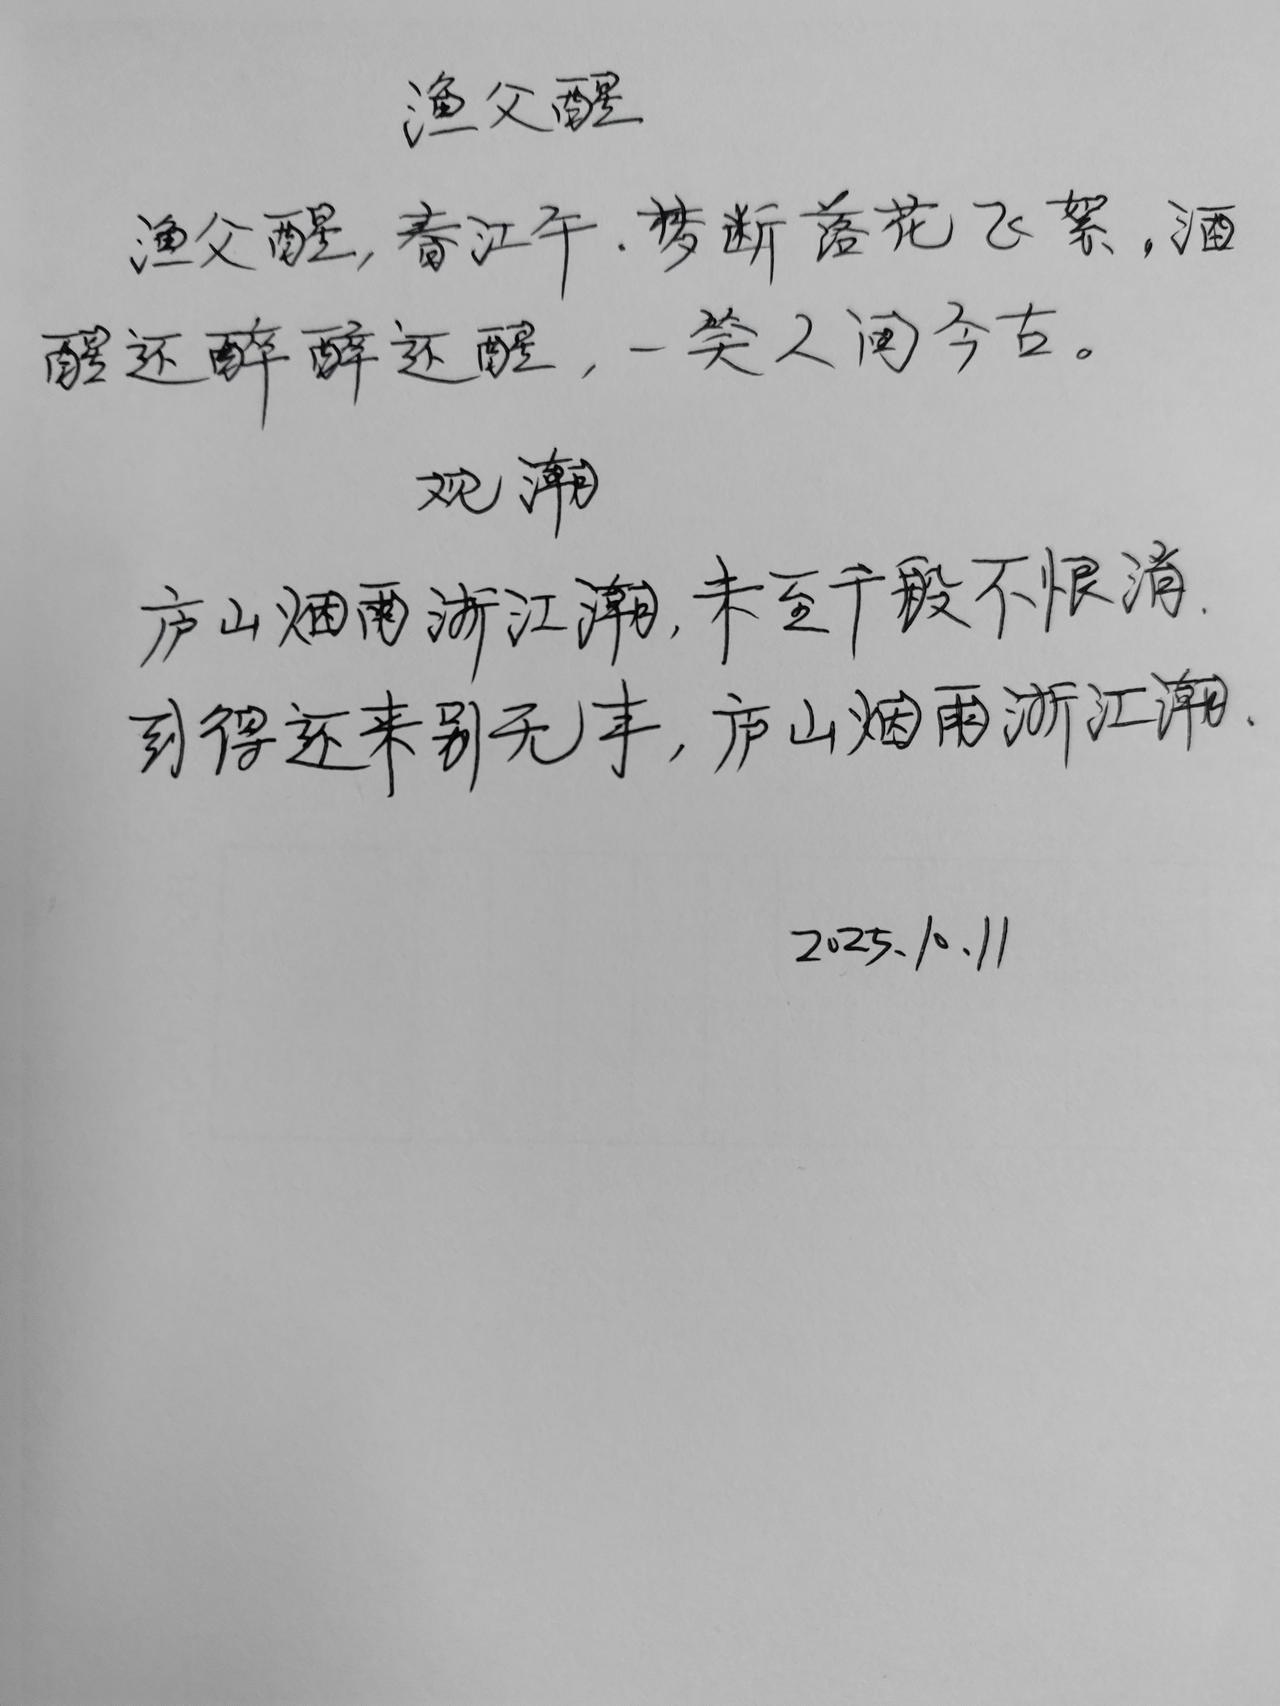 渔父醒
渔父醒,春江午.梦断落花飞絮,酒
醒还醉醉还醒,一笑人间今古。
观潮
庐山烟雨浙江潮,未至千般不恨消.
到得还来别无事,庐山烟雨浙江潮.
2025.10.11